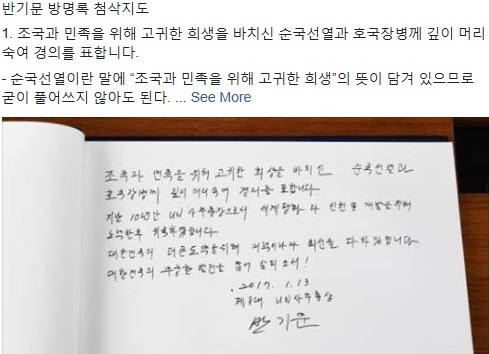 반기문 방명록 첨삭지도
1. 조국과 민족을 위해 고귀한 희생을 바치신 순국선열과 호국장병께 깊이 머리
숙여 경의를 표합니다.
- 순국선열이란 말에 “조국과 민족을 위해 고귀한 희생”의 뜻이 담겨 있으므로
굳이 풀어쓰지 않아도 된다. ... See More
조국과 민족을 위해 고귀한 희생을 바치신 순국선열과
호국장병께 깊이 머리숙여 경의를 표합니다
지난 10년간 UN 사무총장으로서 세계평화와 인권 및 개발을 위해
노력한 후 귀국하였습니다
대한민국의 더 큰 도약을 위해 미력이나마 최선을 다하겠습니다
대한민국의 무궁한 발전을 굽어 살피소서!
2017. 1. 13.
제8대 UN사무총장
반기문